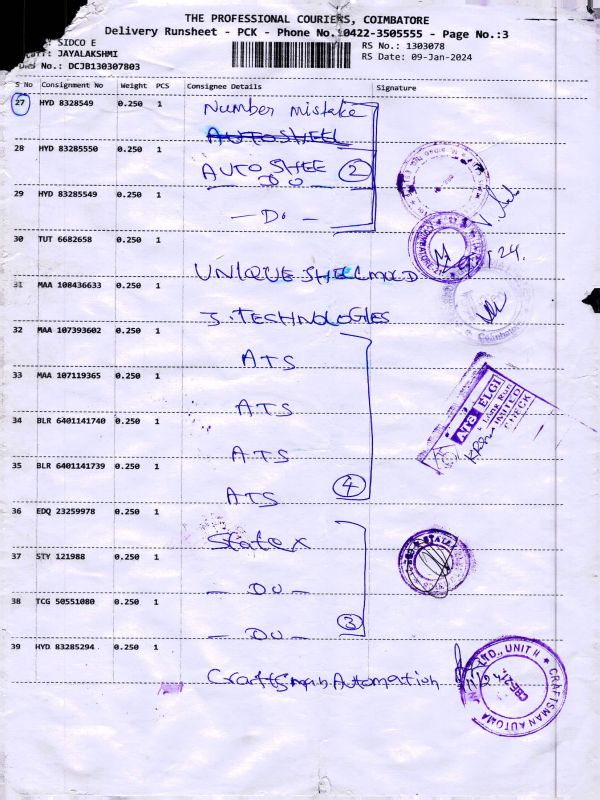 THE PROFESSIONAL COURIERS, COIMBATORE
Delivery Runsheet - PCK - Phone No.:0422-3505555 - Page No.:3
: SIDCO E
: JAYALAKSHMI
No.: DCJB130307803
RS No.: 1303078
RS Date: 09-Jan-2024
S No Consignment No Weight PCS Consignee Details Signature
27 HYD 8328549 0.250 1 Number mistake
AUTOSHELL
28 HYD 83285550 0.250 1 AUTO SHEE 2
DO
29 HYD 83285549 0.250 1 - Do -
30 TUT 6682658 0.250 1 UNIQUE SHELMOLD
31 MAA 108436633 0.250 1 J. TECHNOLOGIES
32 MAA 107393602 0.250 1 ATS
33 MAA 107119365 0.250 1 ATS
34 BLR 6401141740 0.250 1 ATS
35 BLR 6401141739 0.250 1 ATS 4
ATS ELGI
UNITED
CHECK
36 EDQ 23259978 0.250 1 Statex
37 STY 121988 0.250 1 - DO -
38 TCG 50551080 0.250 1 - DO - 3
39 HYD 83285294 0.250 1 Craftsman Automation
LTD., UNIT II ★ CRAFTSMAN AUTOMA
CBE-21